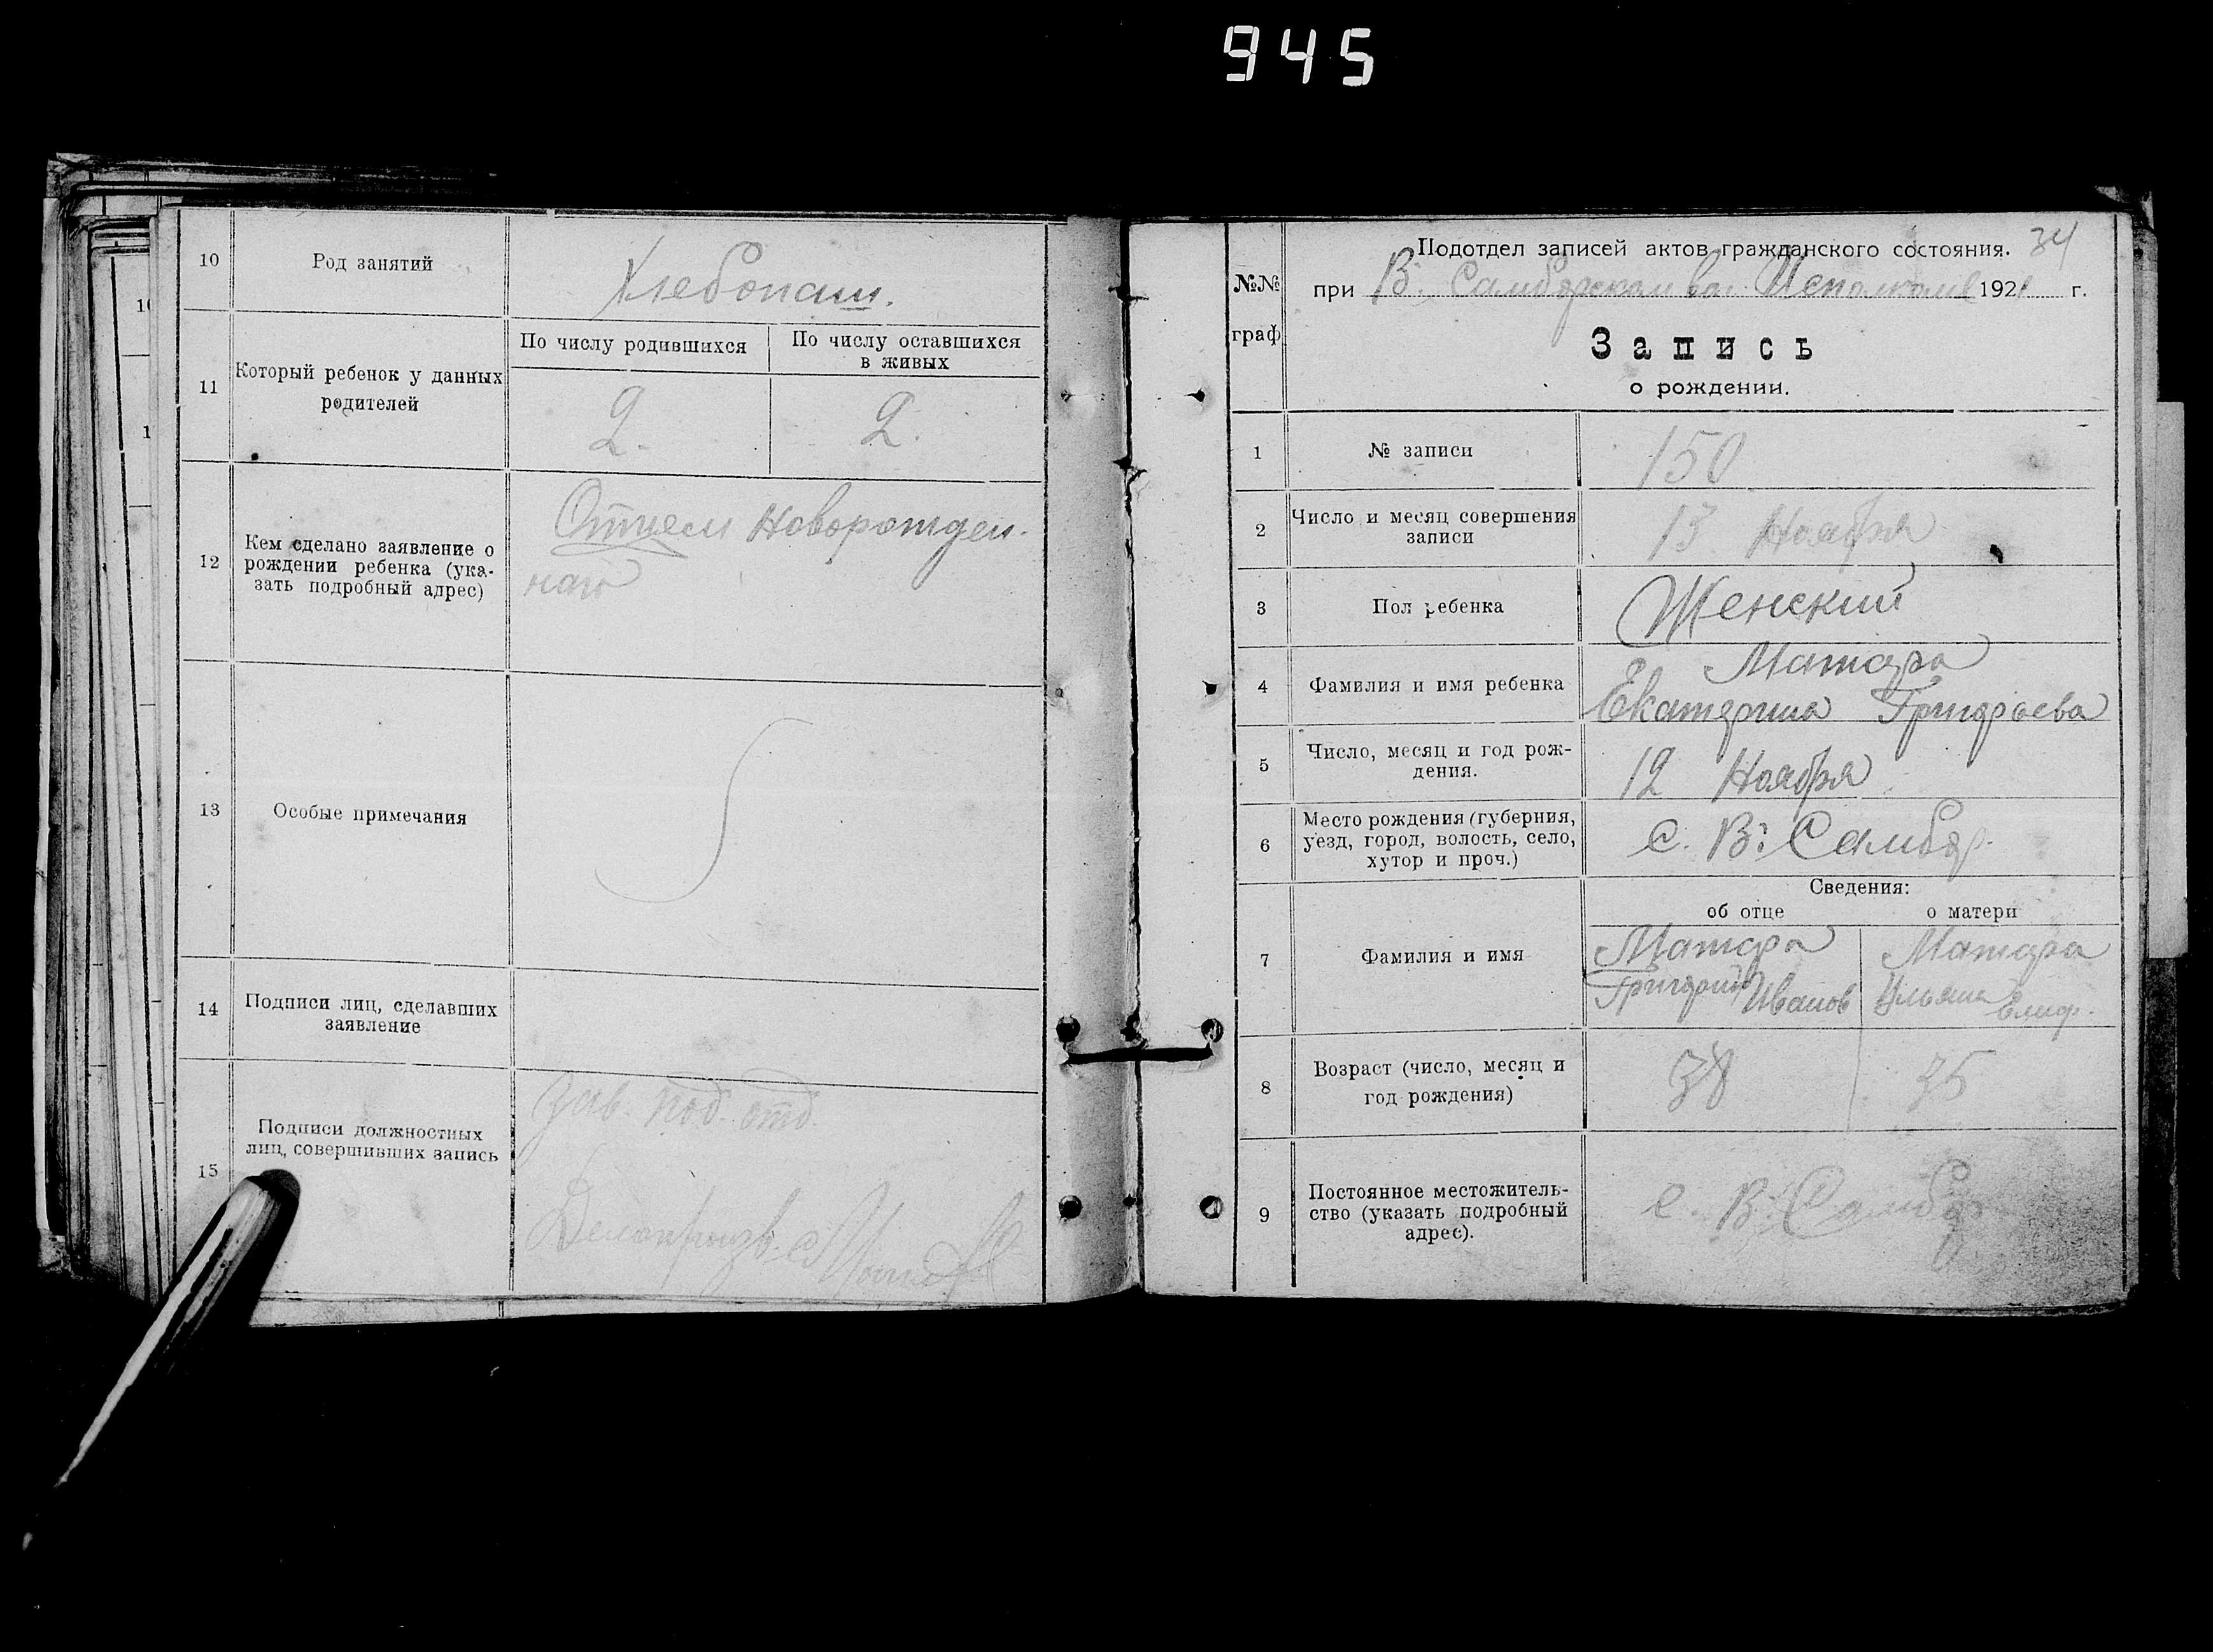 945
10
Род занятий
Хлебопаш.
11
Который ребенок у данных
родителей
По числу родившихся
По числу оставшихся
в живых
2.
2.
12
Кем сделано заявление о
рождении ребенка (ука-
зать подробный адрес)
Отцем Новорожден-
наго
13
Особые примечания
14
Подписи лиц, сделавших
заявление
15
Подписи должностных
лиц, совершивших запись
Зав. под. отд.
Делопроизв.
34
Подотдел записей актов гражданского состояния.
№№
граф
при В. Исполкоме 1921 г.
Запись
о рождении.
1
№ записи
150
2
Число и месяц совершения
записи
13 Ноября
3
Пол ребенка
Женский
4
Фамилия и имя ребенка
Мацора
Екатерина Григорьева
5
Число, месяц и год рож-
дения.
12 Ноября
6
Место рождения (губерния,
уезд, город, волость, село,
хутор и проч.)
с. В. Самбор.
Сведения:
об отце
о матери
7
Фамилия и имя
Мацора
Григорий Иванов
Мацора
Ульяна
8
Возраст (число, месяц и
год рождения)
38
35
9
Постоянное местожитель-
ство (указать подробный
адрес).
с. В. Самбор